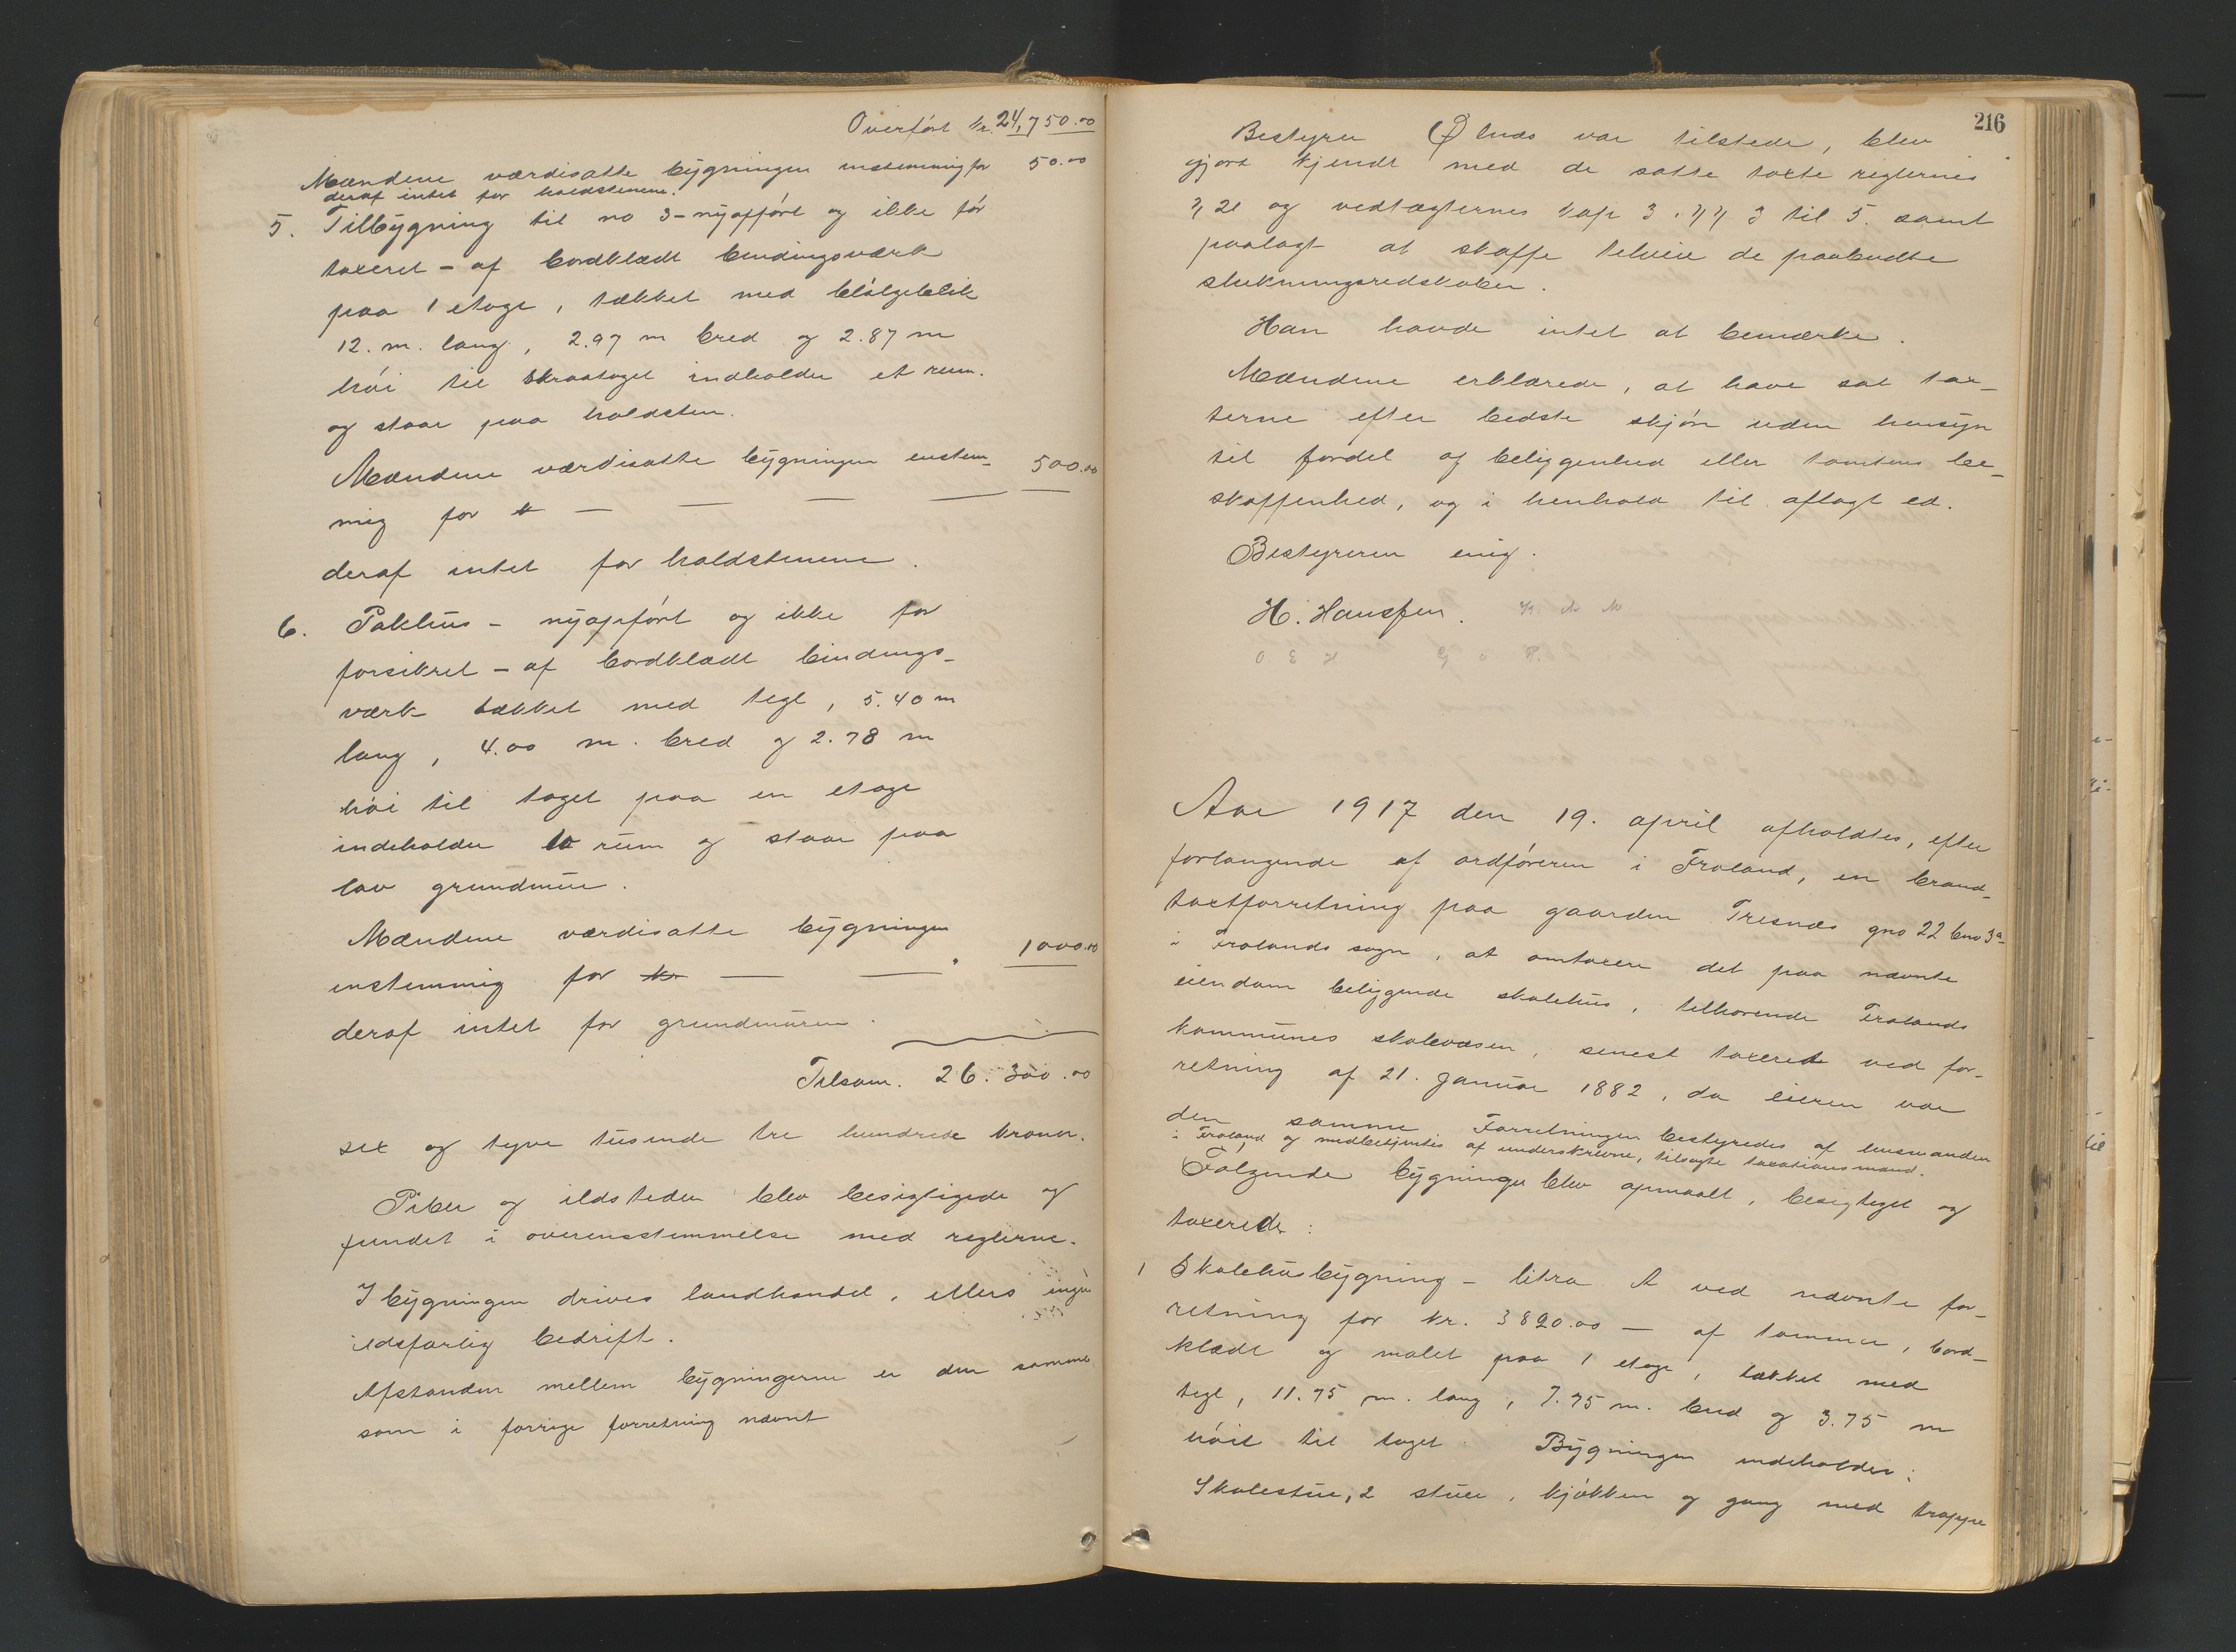 Overført kr. 24,750.00
Mændene værdisatte bygningen enstemmig for 50.00
deraf intet for holdstenene.
5. Tilbygning til no 3 – nyopført og ikke før
taxeret – af bordklædt bindingsværk
paa 1 etage, tækket med bølgeblik
12. m. lang, 2.97 m bred og 2.87 m
høi til skraataget indholder et rum.
og staar paa holdsten.
Mændene værdisatte bygningen enstem-
mig for — — — — 500.00
deraf intet for holdstenene.
6. Pakhus – nyopført og ikke før
forsikret – af bordklædt bindings-
værk tækket med tegl, 5.40 m
lang, 4.00 m. bred og 2.78 m
høi til taget paa en etage
indeholder to rum og staar paa
lav grundmur.
Mændene værdisatte bygningen
enstemmig for kr — — 1000.00
deraf intet for grundmuren.
Tilsam. 26.300.00
sex og tyve tusende tre hundrede kroner.
Piber og ildsteder blev besigtigede og
fundet i overensstemmelse med reglerne.
I bygningen drives landhandel, ellers ingen
ildsfarlig bedrift.
Afstanden mellem bygningerne er den samme
som i forrige forretning nævnt
216
Bestyrer Ølnes var tilstede, blev
gjort kjendt med de satte taxte reglernes
§ 21 og vedtægternes kap 3. §§ 3 til 5. samt
paalagt at skaffe tilveie de paabudte
slukningsredskaber.
Han havde intet at bemærke.
Mændene erklærede, at have sat tax-
terne efter bedste skjøn uden hensyn
til fordel af beliggenhed eller tomtens be-
skaffenhed, og i henhold til aflagt ed.
Bestyreren enig.
H. Hanssen.
Aar 1917 den 19. april afholdtes, efter
forlangende af ordføreren i Froland, en brand-
taxtforretning paa gaarden Tresnes gno 22 bno 3a
i Frolands sogn, at omtaxere det paa nævnte
eiendom beliggende skolehus, tilhørende Frolands
kommunes skolevæsen, senest taxeret ved for-
retning af 21. januar 1882, da eieren var
den samme Forretningen bestyredes af lensmanden
i Froland og medbetjentes af underskrevne, tilsagte taxationsmænd.
Følgende bygninger blev opmaalt, besigtiget og
taxerede:
1 Skolehusbygning – litra A ved nævnte for-
retning for kr. 3820.00 — af tømmer, bord-
klædt og malet paa 1 etage, tækket med
tegl, 11.75 m. lang, 7.75 m. bred og 3.75 m
høit til taget. Bygningen indeholder:
Skolestue, 2 stuer, kjøkken og gang med trappe